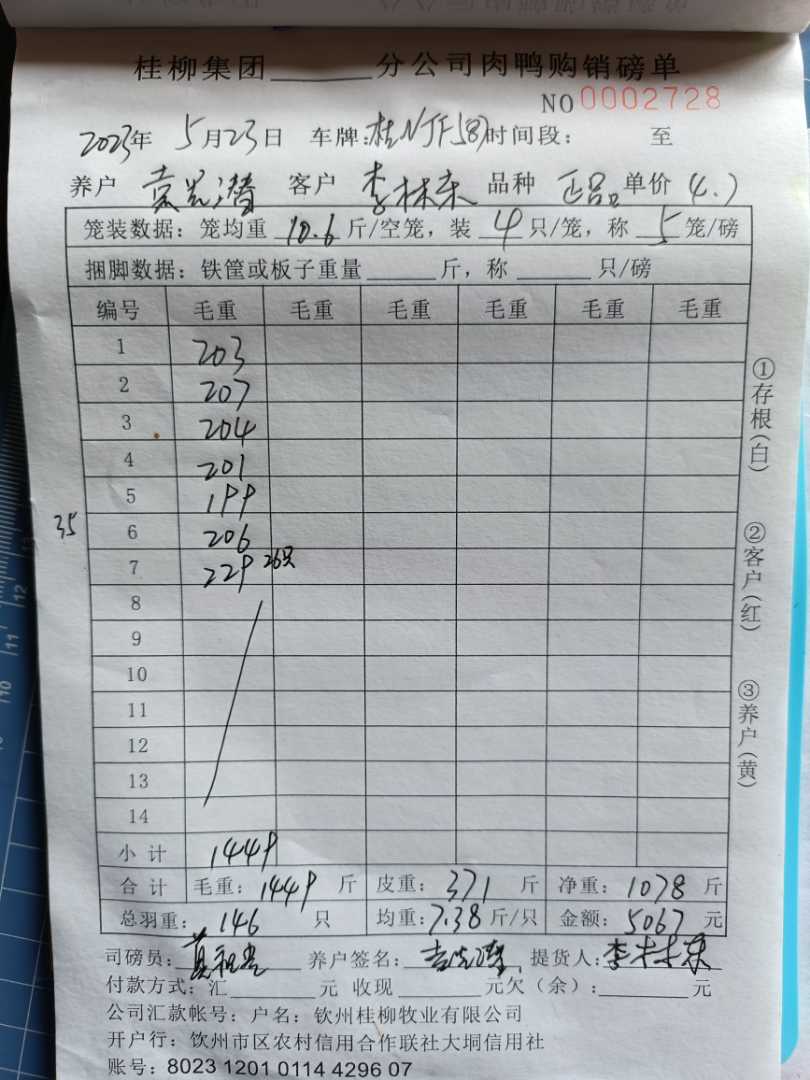 桂柳集团______分公司肉鸭购销磅单
NO 0002728
2023年 5月23日 车牌:桂NJF587 时间段: 至
养户 袁先潜 客户 李林东 品种 正品 单价 4.7
笼装数据: 笼均重 10.6 斤/空笼, 装 4 只/笼, 称 5 笼/磅
捆脚数据: 铁筐或板子重量______斤, 称______只/磅
编号 毛重 毛重 毛重 毛重 毛重 毛重
1 203
2 207
3 204
4 201
5 199
35
6 206
7 229 26只
8
9
10
11
12
13
14
小计 1449
合计 毛重: 1449 斤 皮重: 371 斤 净重: 1078 斤
总羽重: 146 只 均重: 7.38 斤/只 金额: 5067 元
司磅员: 养户签名: 袁先潜 提货人: 李林东
付款方式: 汇______元 收现______元欠(余):______元
公司汇款帐号: 户名: 钦州桂柳牧业有限公司
开户行: 钦州市区农村信用合作联社大垌信用社
账号: 8023 1201 0114 4296 07
①存根(白)
②客户(红)
③养户(黄)
12
11
10